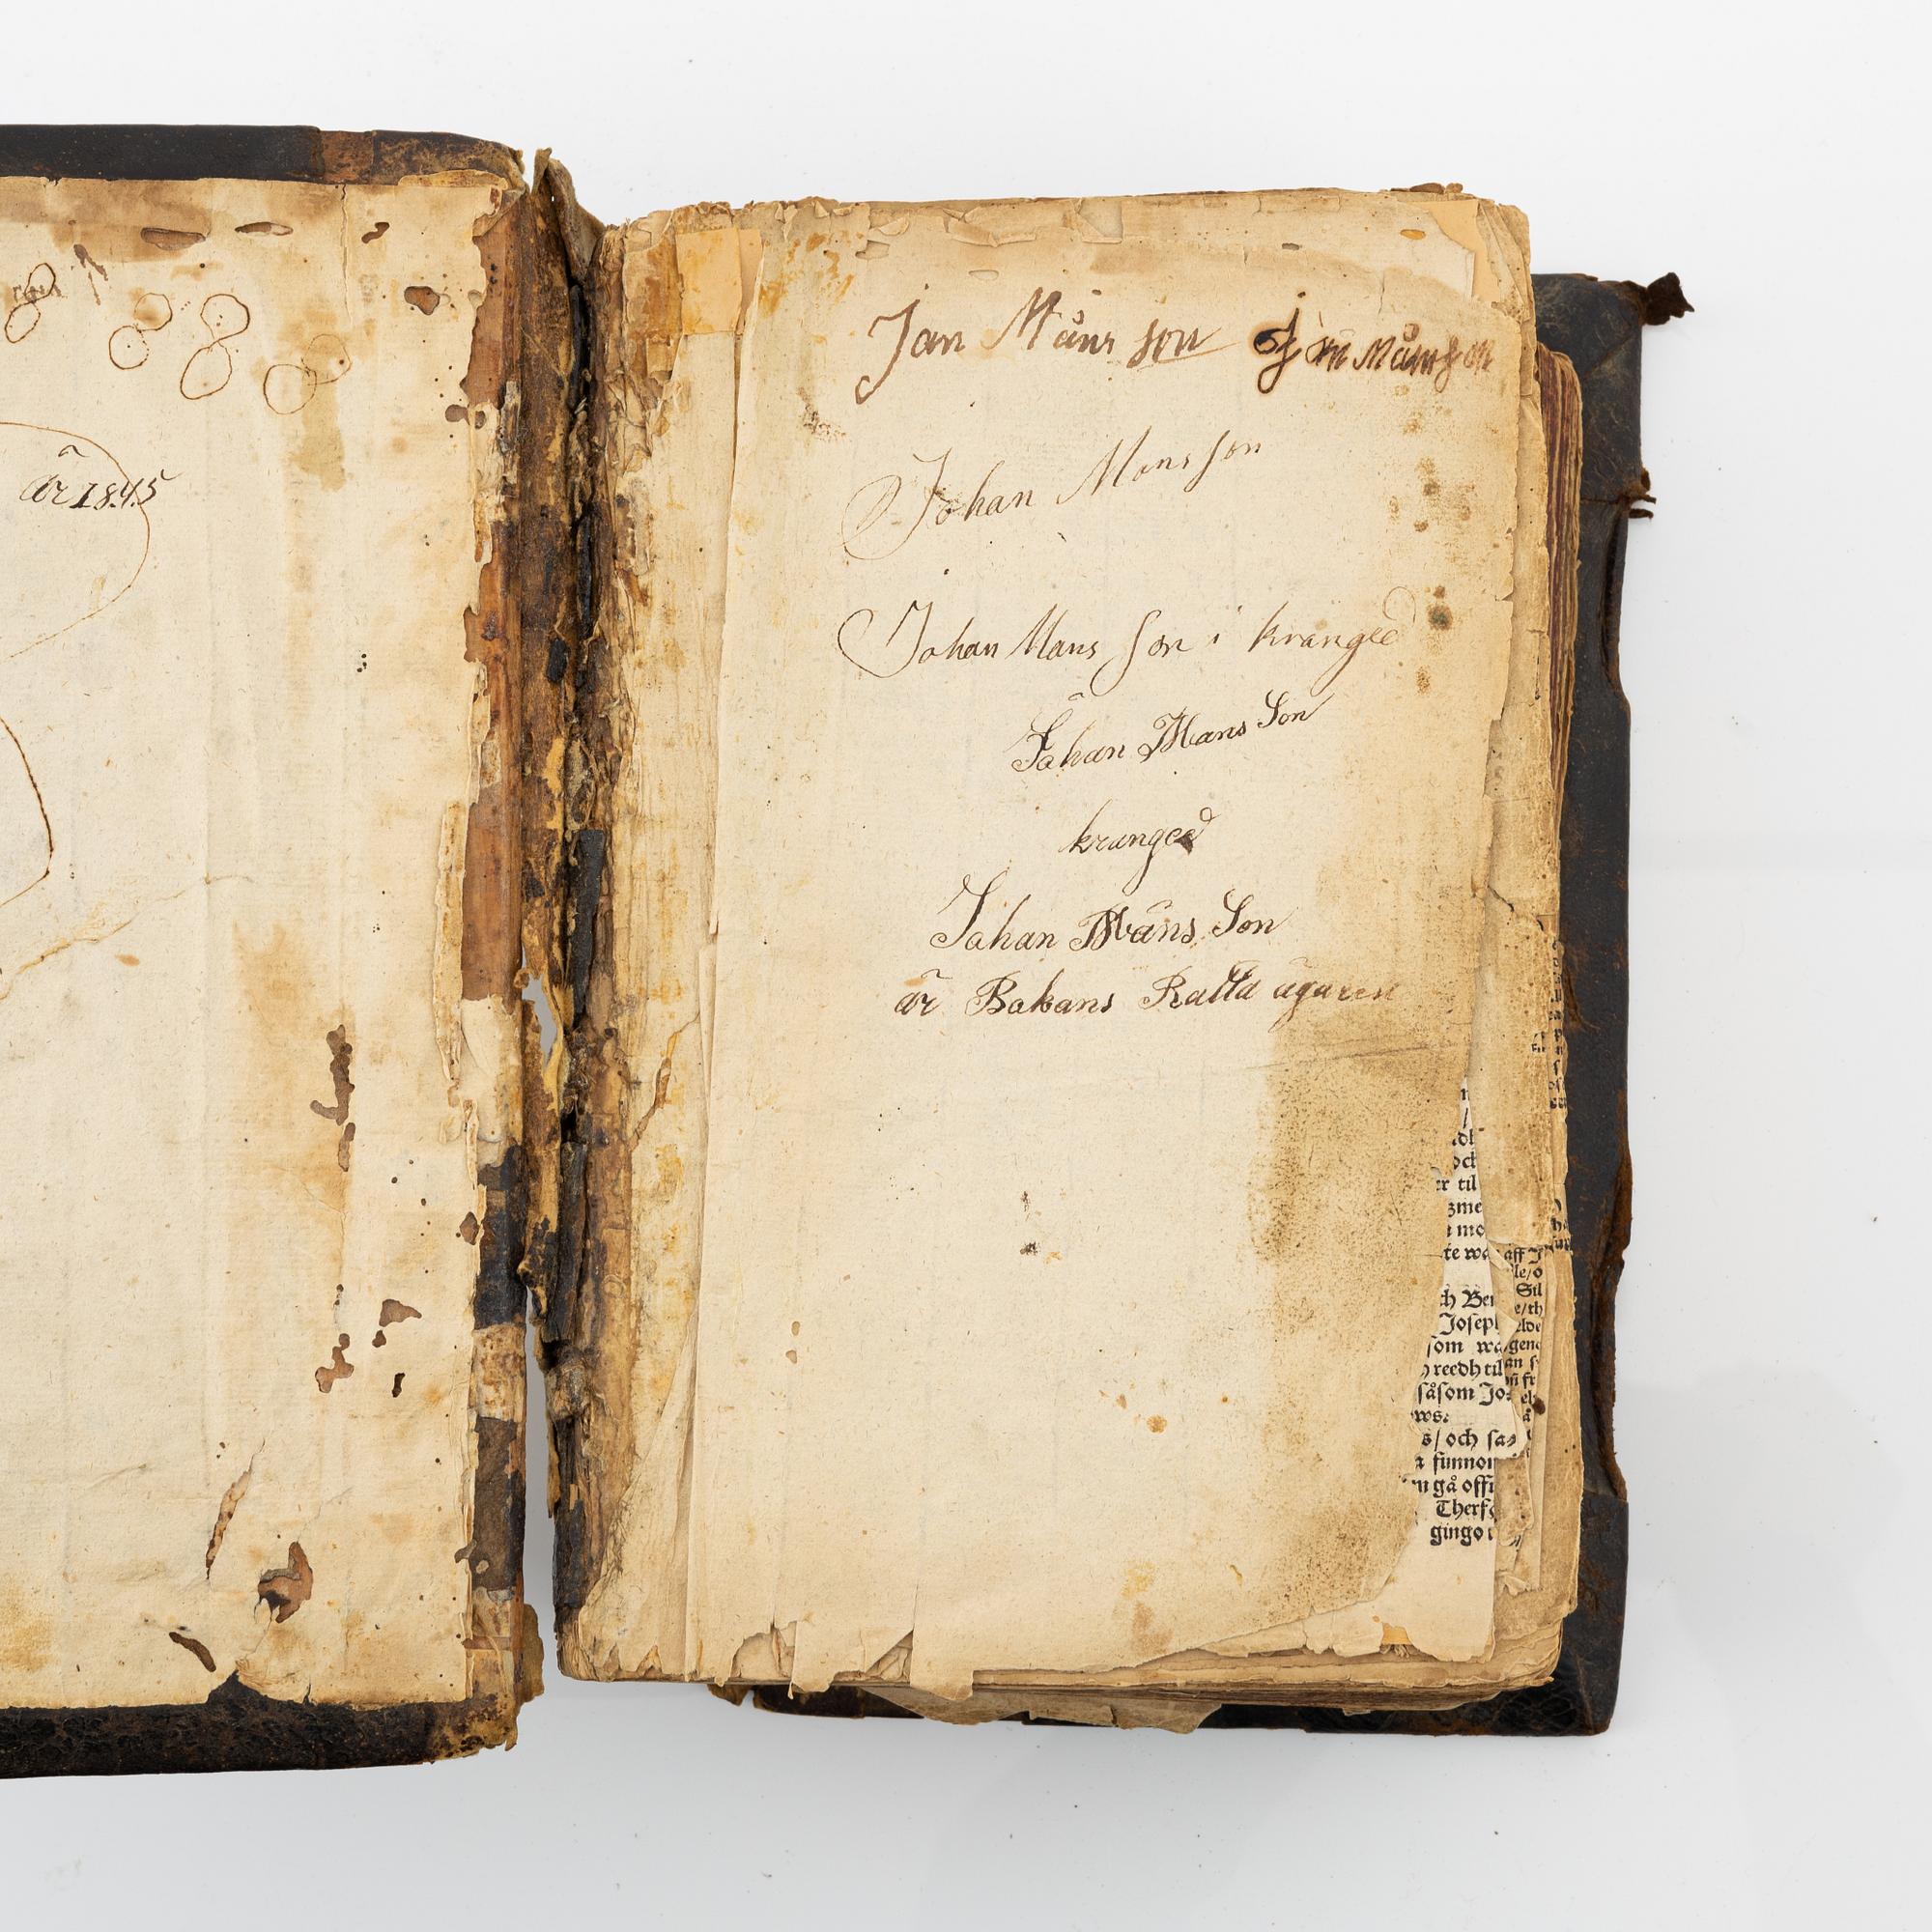 år 1845
Jan Måns son Jan Månson
Johan Mansson
Johan Mans son i kranged
Johan Mans Son
kranged
Johan Måns Son
är Bokans Rätta ägaren
och
er til
te wa
aff
ch Ben
Joseph
som wa
reedh til
såsom Jo
s/ och sa
funno
gå offt
Therf
gingo